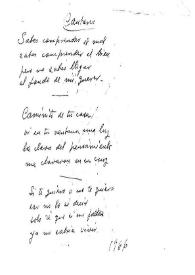 Cantares
Sabes comprender el mal
sabes comprender el bien
pero no sabes llegar
al fondo de mi querer.
Caminito de tu casa
vi en tu ventana una luz
los clavos del pensamiento
me clavaron en su cruz
Si te quiero o no te quiero
eso no lo sé decir
solo sé que si me faltas
ya no sabría vivir.
1966